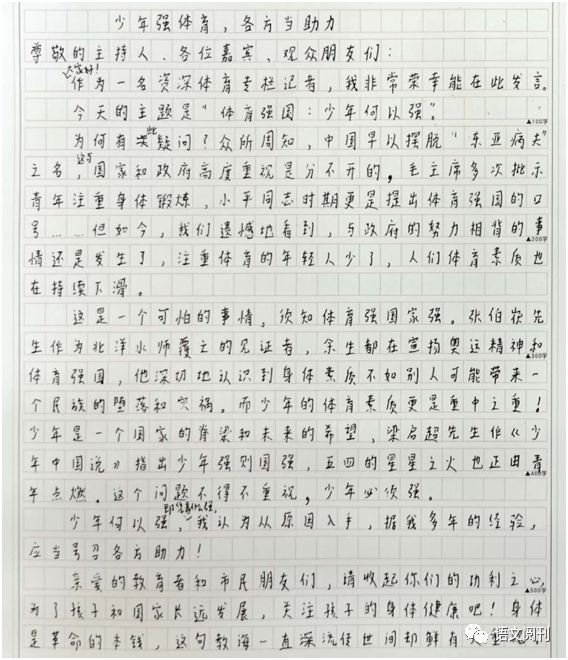 少年强体育，各方当助力
尊敬的主持人、各位嘉宾、观众朋友们：
大家好！
作为一名资深体育专栏记者，我非常荣幸能在此发言。
今天的主题是“体育强国：少年何以强”。
▲100字
为何有此疑问？众所周知，中国早以摆脱“东亚病夫”
之名，这与国家和政府高度重视是分不开的，毛主席多次批示
青年注重身体锻炼，小平同志时期更是提出体育强国的口
号……但如今，我们遗憾地看到，与政府的努力相背的事
▲200字
情还是发生了，注重体育的年轻人少了，人们体育素质也
在持续下滑。
这是一个可怕的事情，须知体育强国家强。张伯苓先
生作为北洋水师覆亡的见证者，余生都在宣扬奥运精神和
▲300字
体育强国，他深切地认识到身体素质不如别人可能带来一
个民族的堕落和灾祸。而少年的体育素质更是重中之重！
少年是一个国家的脊梁和未来的希望，梁启超先生作《少
年中国说》指出少年强则国强，五四的星星之火也正由青
▲400字
年点燃。这个问题不得不重视，少年必须强。
少年何以强，我认为从原因入手，据我多年的经验，
应当号召各方助力！
亲爱的教育者和市民朋友们，请收起你们的功利之心，
▲500字
为了孩子和国家长远发展，关注孩子的身体健康吧！身体
是革命的本钱，这句教诲一直深流传世间却鲜有人重视
语文周刊